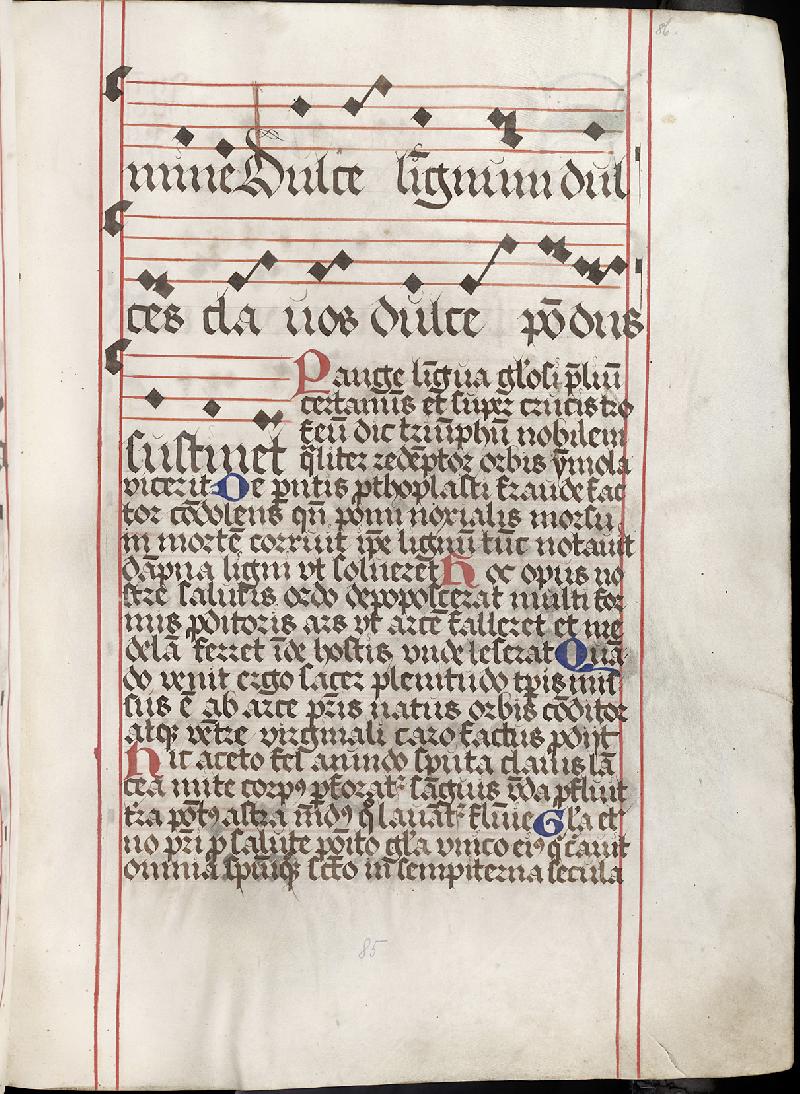 86
mine Dulce lignum dul
ces cla uos dulce põdus
sustinet
Pange lĩgua gl'osi p̃liũ
certaminis et super crucis tro
feũ dic triũphũ nobilem
q̃liter redẽptor orbis ỹmola
vicerit De pntis p̱thoplasti fraude fac
tor cõdolens qñ pomi noxialis morsu
in mortẽ corruit ip̃e lignũ tũc notauit
dãpna ligni vt solueret Hoc opus no
stre salutis ordo depoposcerat multifor
mis p̱ditoris ars vt artẽ falleret et me
delã ferret ĩde hostis vnde leserat Quã
do venit ergo sacri plenitudo tp̃is mis
sus ẽ ab arce pr̃is natus orbis cõditor
atq̃ vẽtre virginali caro factus p̱dijt
Hic aceto fel arundo sputa clauis lã
cea mite corpꝰ p̱forat᷑ sãguis vñda p̱fluit
tr̃a põtꝰ astra mũdꝰ q̃ lauãt᷑ flũie Gl'a et
no pr̃i p̱ salute p̱õito gl'a vnico eiꝰ
omnia sp̃uiq̃ sc̃to in sempiterna secula
85